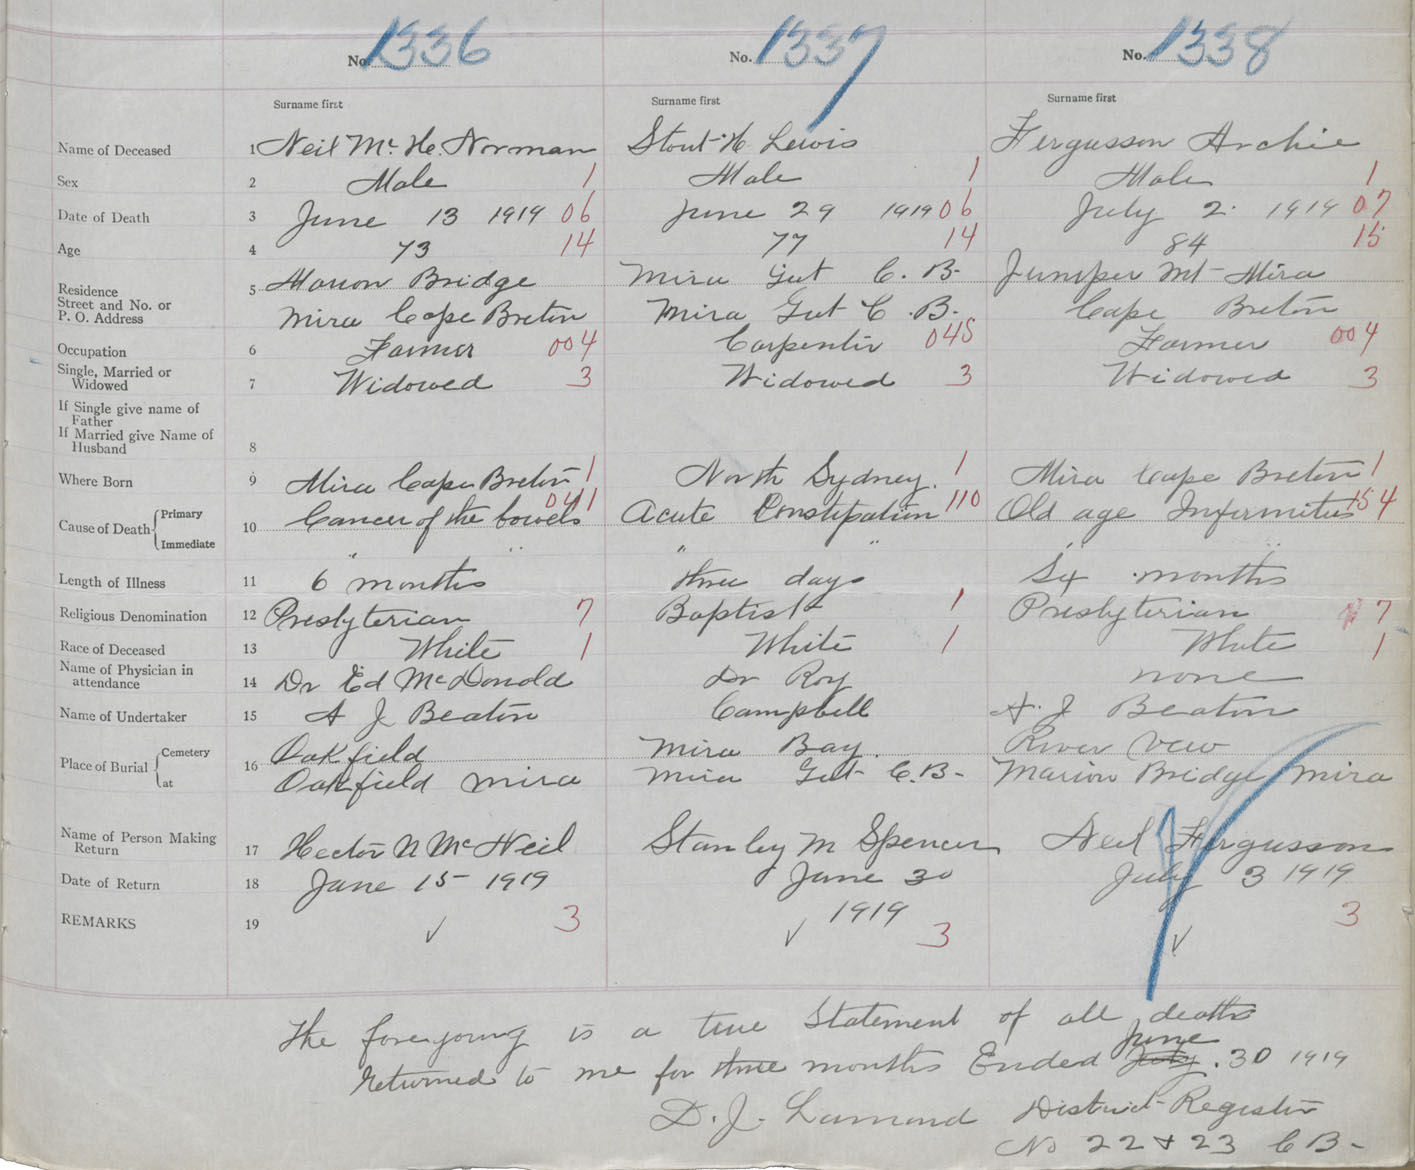 No. 1336 No. 1337 No. 1338
Surname first Surname first Surname first
Name of Deceased 1 Neil Mc. He. Norman Stout H. Lewis Fergusson Archie
Sex 2 Male 1 Male 1 Male 1
Date of Death 3 June 13 1919 06 June 29 1919 06 July 2. 1919 07
Age 4 73 14 77 14 84 15
Residence
Street and No. or
P. O. Address
5 Marion Bridge Mira Gut C. B. Juniper Mt Mira
Mira Cape Breton Mira Gut C. B. Cape Breton
Occupation 6 Farmer 004 Carpenter 045 Farmer 004
Single, Married or
Widowed 7 Widowed 3 Widowed 3 Widowed 3
If Single give name of
Father
If Married give Name of
Husband 8
Where Born 9 Mira Cape Breton 1 North Sydney. 1 Mira Cape Breton 1
Cause of Death Primary 10 Cancer of the bowels 041 Acute Constipation 110 Old age Infirmitus 154
Immediate " " " " " "
Length of Illness 11 6 months three days Six months
Religious Denomination 12 Presbyterian 7 Baptist 1 Presbyterian 7
Race of Deceased 13 White 1 White 1 White 1
Name of Physician in
attendance 14 Dr Ed McDonold Dr Roy none
Name of Undertaker 15 A J Beaton Campbell A. J Beaton
Place of Burial Cemetery 16 Oakfield Mira Bay. River View
at Oakfield Mira Mira Gut C.B- Marion Bridge Mira
Name of Person Making
Return 17 Hector N McNeil Stanley M Spencer Neil Fergusson
Date of Return 18 June 15 1919 June 30 July 3 1919
REMARKS 19 3 1919 3 3
The foregoing is a true Statement of all deaths
June
returned to me for three months Ended July. 30 1919
D. J. Lamond District Register
No 22 & 23 C B-